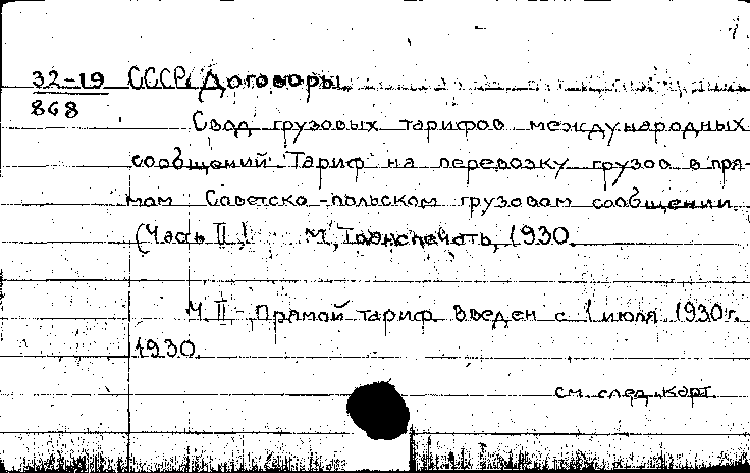 32-19 СССР. Договоры.
868
Свод грузовых тарифов международных
сообщений. Тариф на перевозку грузов в пря-
мом Советско-польском грузовом сообщении.
(Часть II). М., Транспечать, 1930.
Ч. II - Прямой тариф. Введен с 1 июля 1930 г.
1930.
см. след. карт.